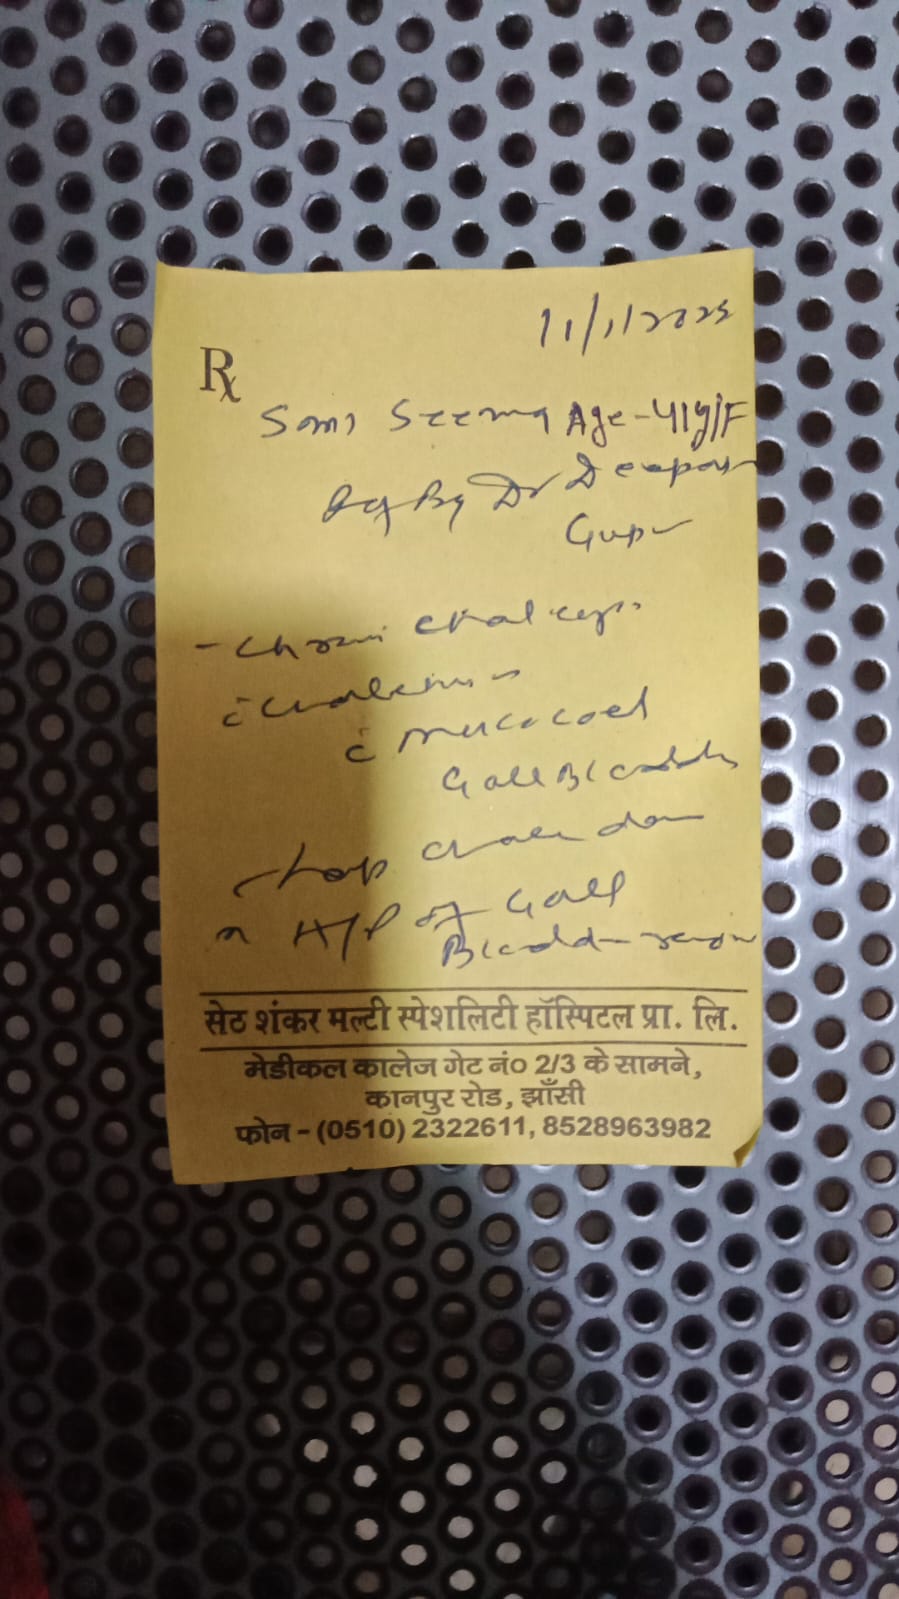 11/1/2025
Rx
Smt Seema Age-41y/F
Ref By Dr Deepak
Gup
- Chronic
c̄
c̄ mucocoel
Gall Bladder
Lap done
H/P of Gall
Bladder
सेठ शंकर मल्टी स्पेशलिटी हॉस्पिटल प्रा. लि.
मेडीकल कालेज गेट नं० 2/3 के सामने,
कानपुर रोड, झाँसी
फोन - (0510) 2322611, 8528963982